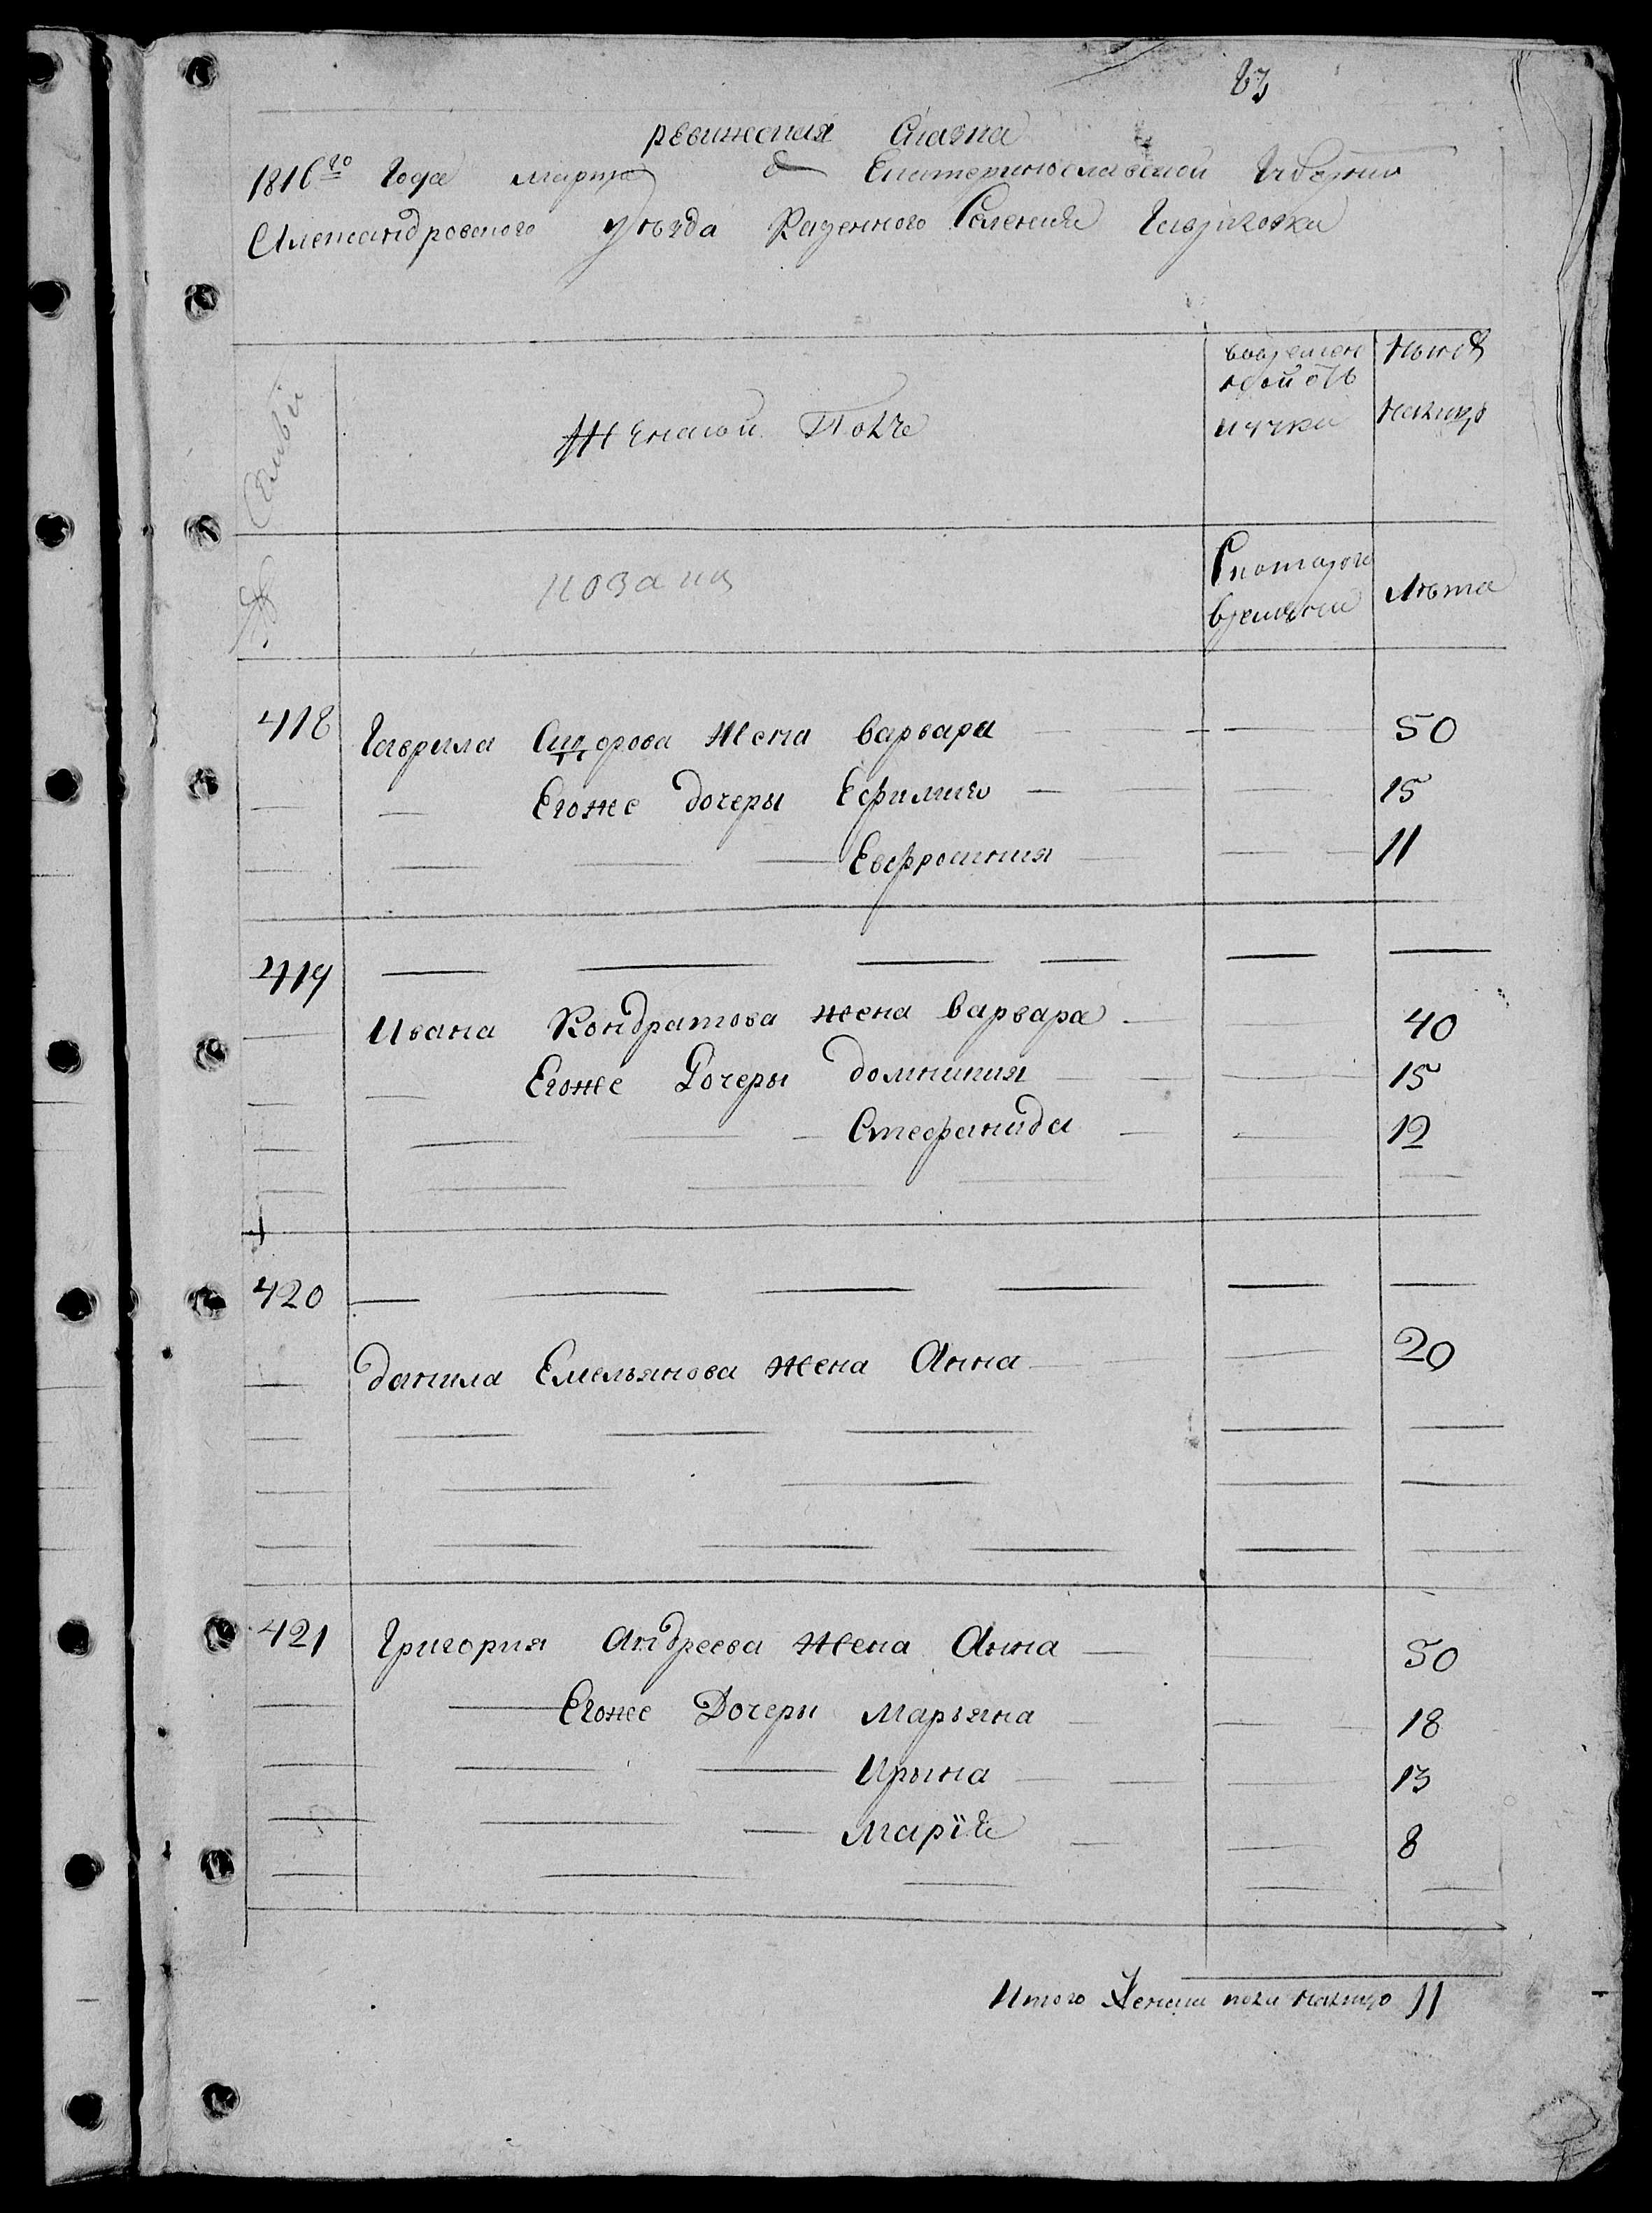 83
ревижская Сказка
1816го Года марта д Екатеринославской Губернии
Александровского уезда Казенного Селения Гавриловки
Семьи
Женской Полъ
во временной отлучки
Ныне налицо
№
козаки
С которого времяни
Лѣта
418 Гаврила Сидорова жена варвара — — 50
— — Егоже дочеры Ефимия — — 15
— — — Евфросиния — — 11
419 — — — — — —
— Ивана Кондратова жена варвара — — 40
— — Егоже Дочеры домникия — — 15
— — — Стефанида — — 12
420 — — — — — —
— данила Емельянова жена Анна — — 20
421 Григория Андреева жена Анна — — 50
— — Егоже Дочеры Марьяна — — 18
— — — Ирына — — 13
— — — Марїя — — 8
Итого Женска пола налицо 11